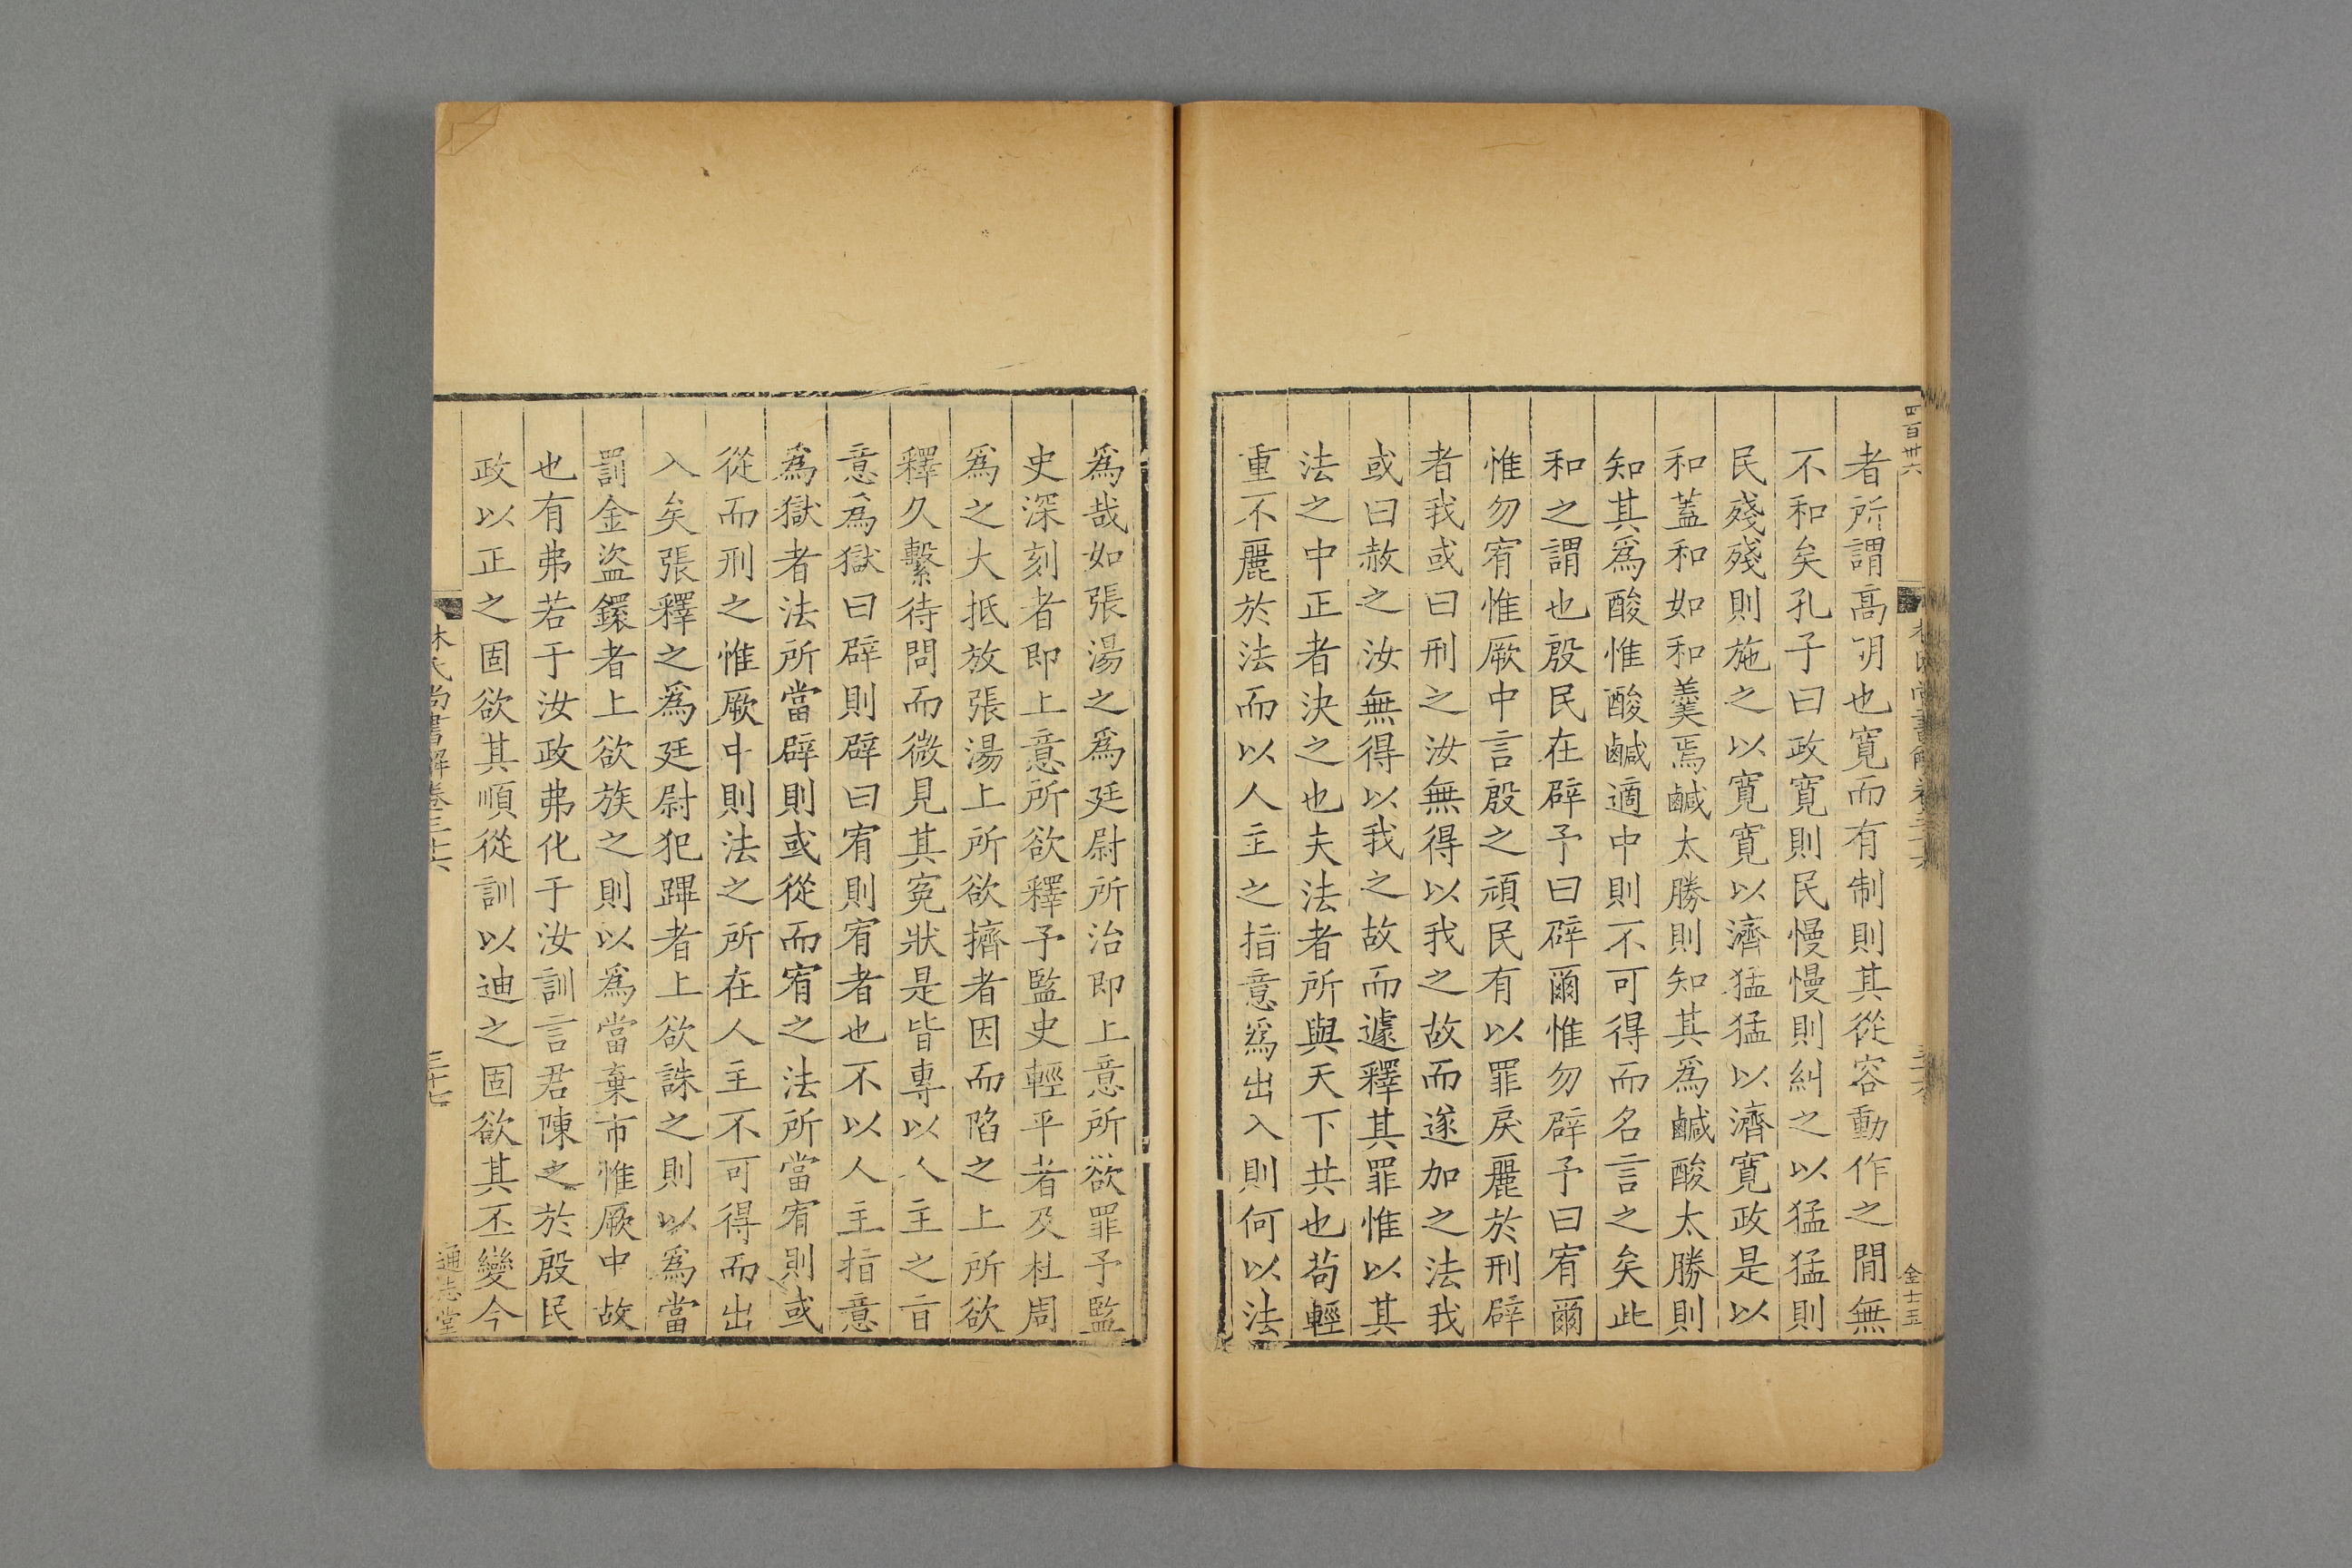 四百卅六
金士玉
者所謂髙明也寛而有制則其從容動作之閒無
不和矣孔子曰政寛則民慢慢則糾之以猛猛則
民殘殘則施之以寛寛以濟猛猛以濟寛政是以
和蓋和如和羹焉鹹太勝則知其爲鹹酸太勝則
知其爲酸惟酸鹹適中則不可得而名言之矣此
和之謂也殷民在辟予曰辟爾惟勿辟予曰宥爾
惟勿宥惟厥中言殷之頑民有以罪戾麗於刑辟
者我或曰刑之汝無得以我之故而遂加之法我
或曰赦之汝無得以我之故而遽釋其罪惟以其
法之中正者決之也夫法者所與天下共也苟輕
重不麗於法而以人主之指意爲出入則何以法
爲哉如張湯之爲廷尉所治即上意所欲罪予監
史深刻者即上意所欲釋予監史輕平者及杜周
爲之大抵放張湯上所欲擠者因而陷之上所欲
釋久繫待問而微見其冤狀是皆專以人主之㫖
意爲獄曰辟則辟曰宥則宥者也不以人主指意
爲獄者法所當辟則或從而宥之法所當宥則或
從而刑之惟厥中則法之所在人主不可得而出
入矣張釋之爲廷尉犯蹕者上欲誅之則以爲當
罰金盜鐶者上欲族之則以爲當棄市惟厥中故
也有弗若于汝政弗化于汝訓言君陳之於殷民
政以正之固欲其順從訓以迪之固欲其丕變今
林氏尚書解卷三十六
三十七
通志堂